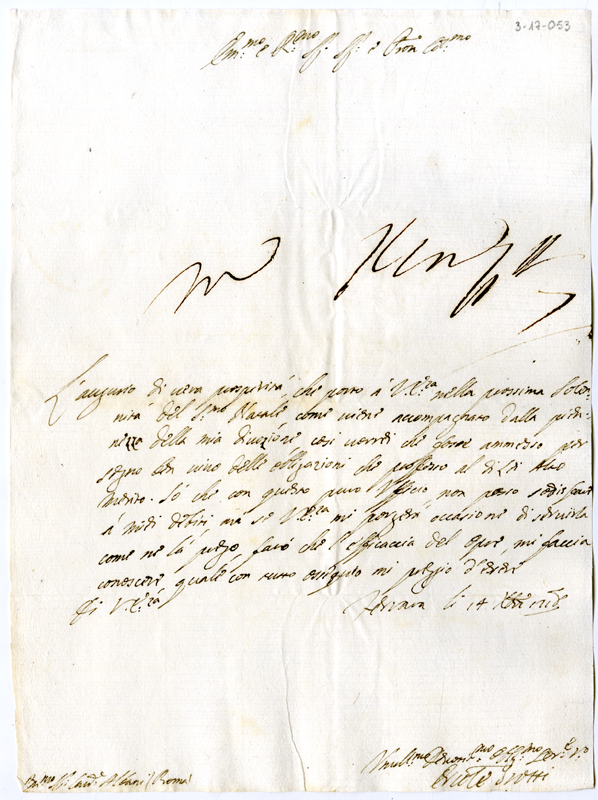 3-17-053
Em.mo e R.mo Sig. Sig. e Pron Col.mo
L'augurio di vera prosperità, che porto à V.Em.za nella prossima Solen-
nità del S.mo Natale, come viene accompagnato dalla pie-
nezza della mia divozione, così vorrei che fosse ammesso per
segno ben vivo delle obligazioni che professo al di Lei alto
merito. Sò che con questo puro Uffizio non posso sodisfare
à miei debiti, mà se V.Em.za mi porgerà occasione di servirla
come ne la priego, farò che l'efficaccia del opre, mi faccia
conoscere quale con tutto ossequio mi pregio d'essere
Di V.Em.za
li 14 Xbre
Em.mo Sig. Card. Albani (Roma)
Umil.mo Devot.mo Oblig.mo Ser.e